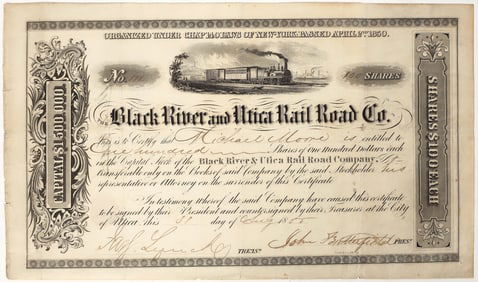 ORGANIZED UNDER CHAP 140 LAWS OF NEW-YORK, PASSED APRIL 2ND 1850.
No.
SHARES
CAPITAL $1,500,000
SHARES $100 EACH
The Black River and Utica Rail Road Co.
This is to Certify that Michael Moore is entitled to
hundred Shares of One Hundred Dollars each
in the Capital Stock of the Black River & Utica Rail Road Company,
transferable only on the Books of said Company by the said Stockholder his
representative or Attorney on the surrender of this Certificate
In testimony whereof the said Company have caused this certificate
to be signed by their President and countersigned by their Treasurer at the City
of Utica, this day of July 185
TREASR.
John Butterfield PREST.